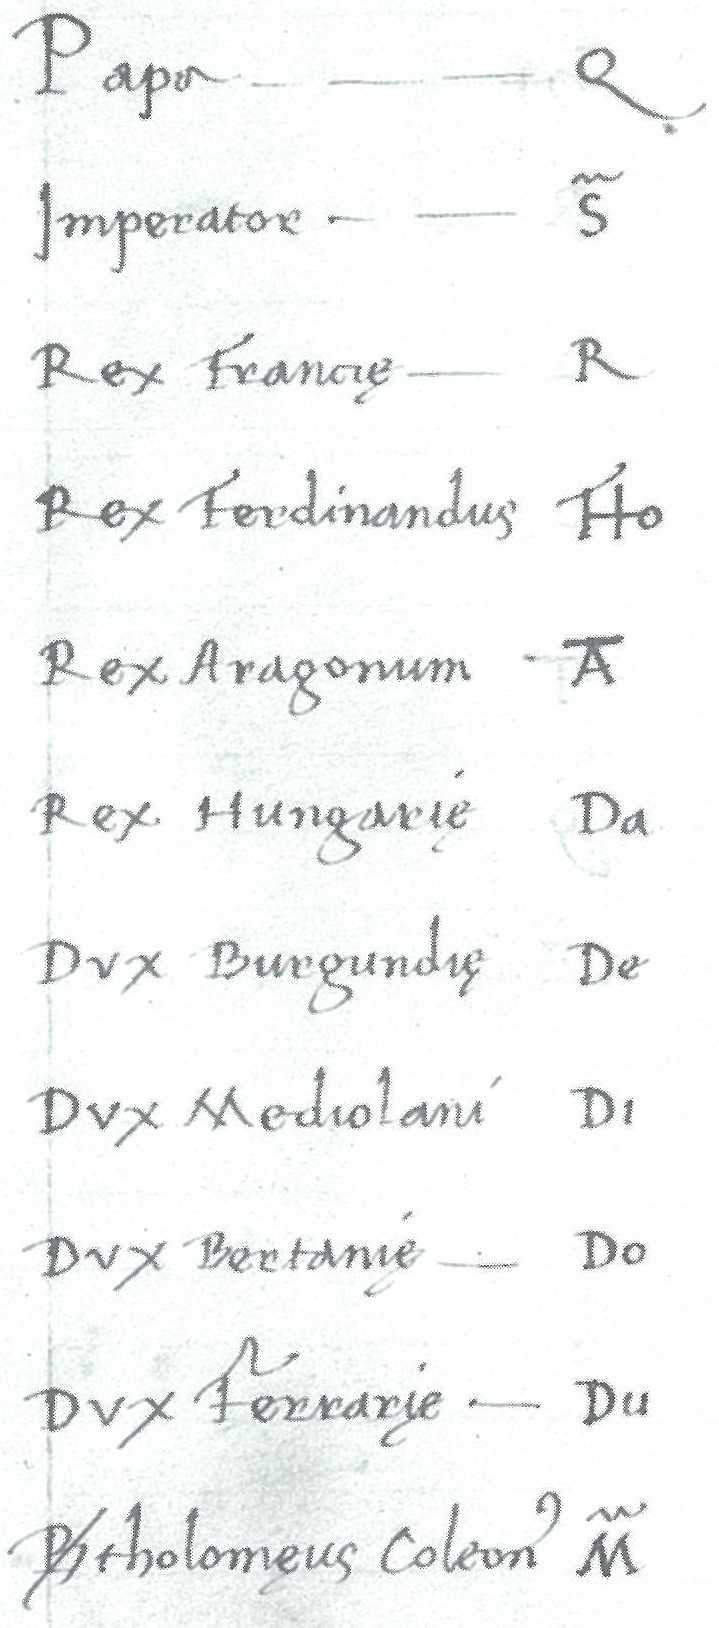 Papa — — — Q
Imperator — — S̃
Rex Francię — R
Rex Ferdinandus Ho
Rex Aragonum - Ā
Rex Hungarię Da
Dvx Burgundię De
Dvx Mediolani Di
Dvx Bertanię — Do
Dvx Ferrarię — Du
Bartholomeus Coleon M̃